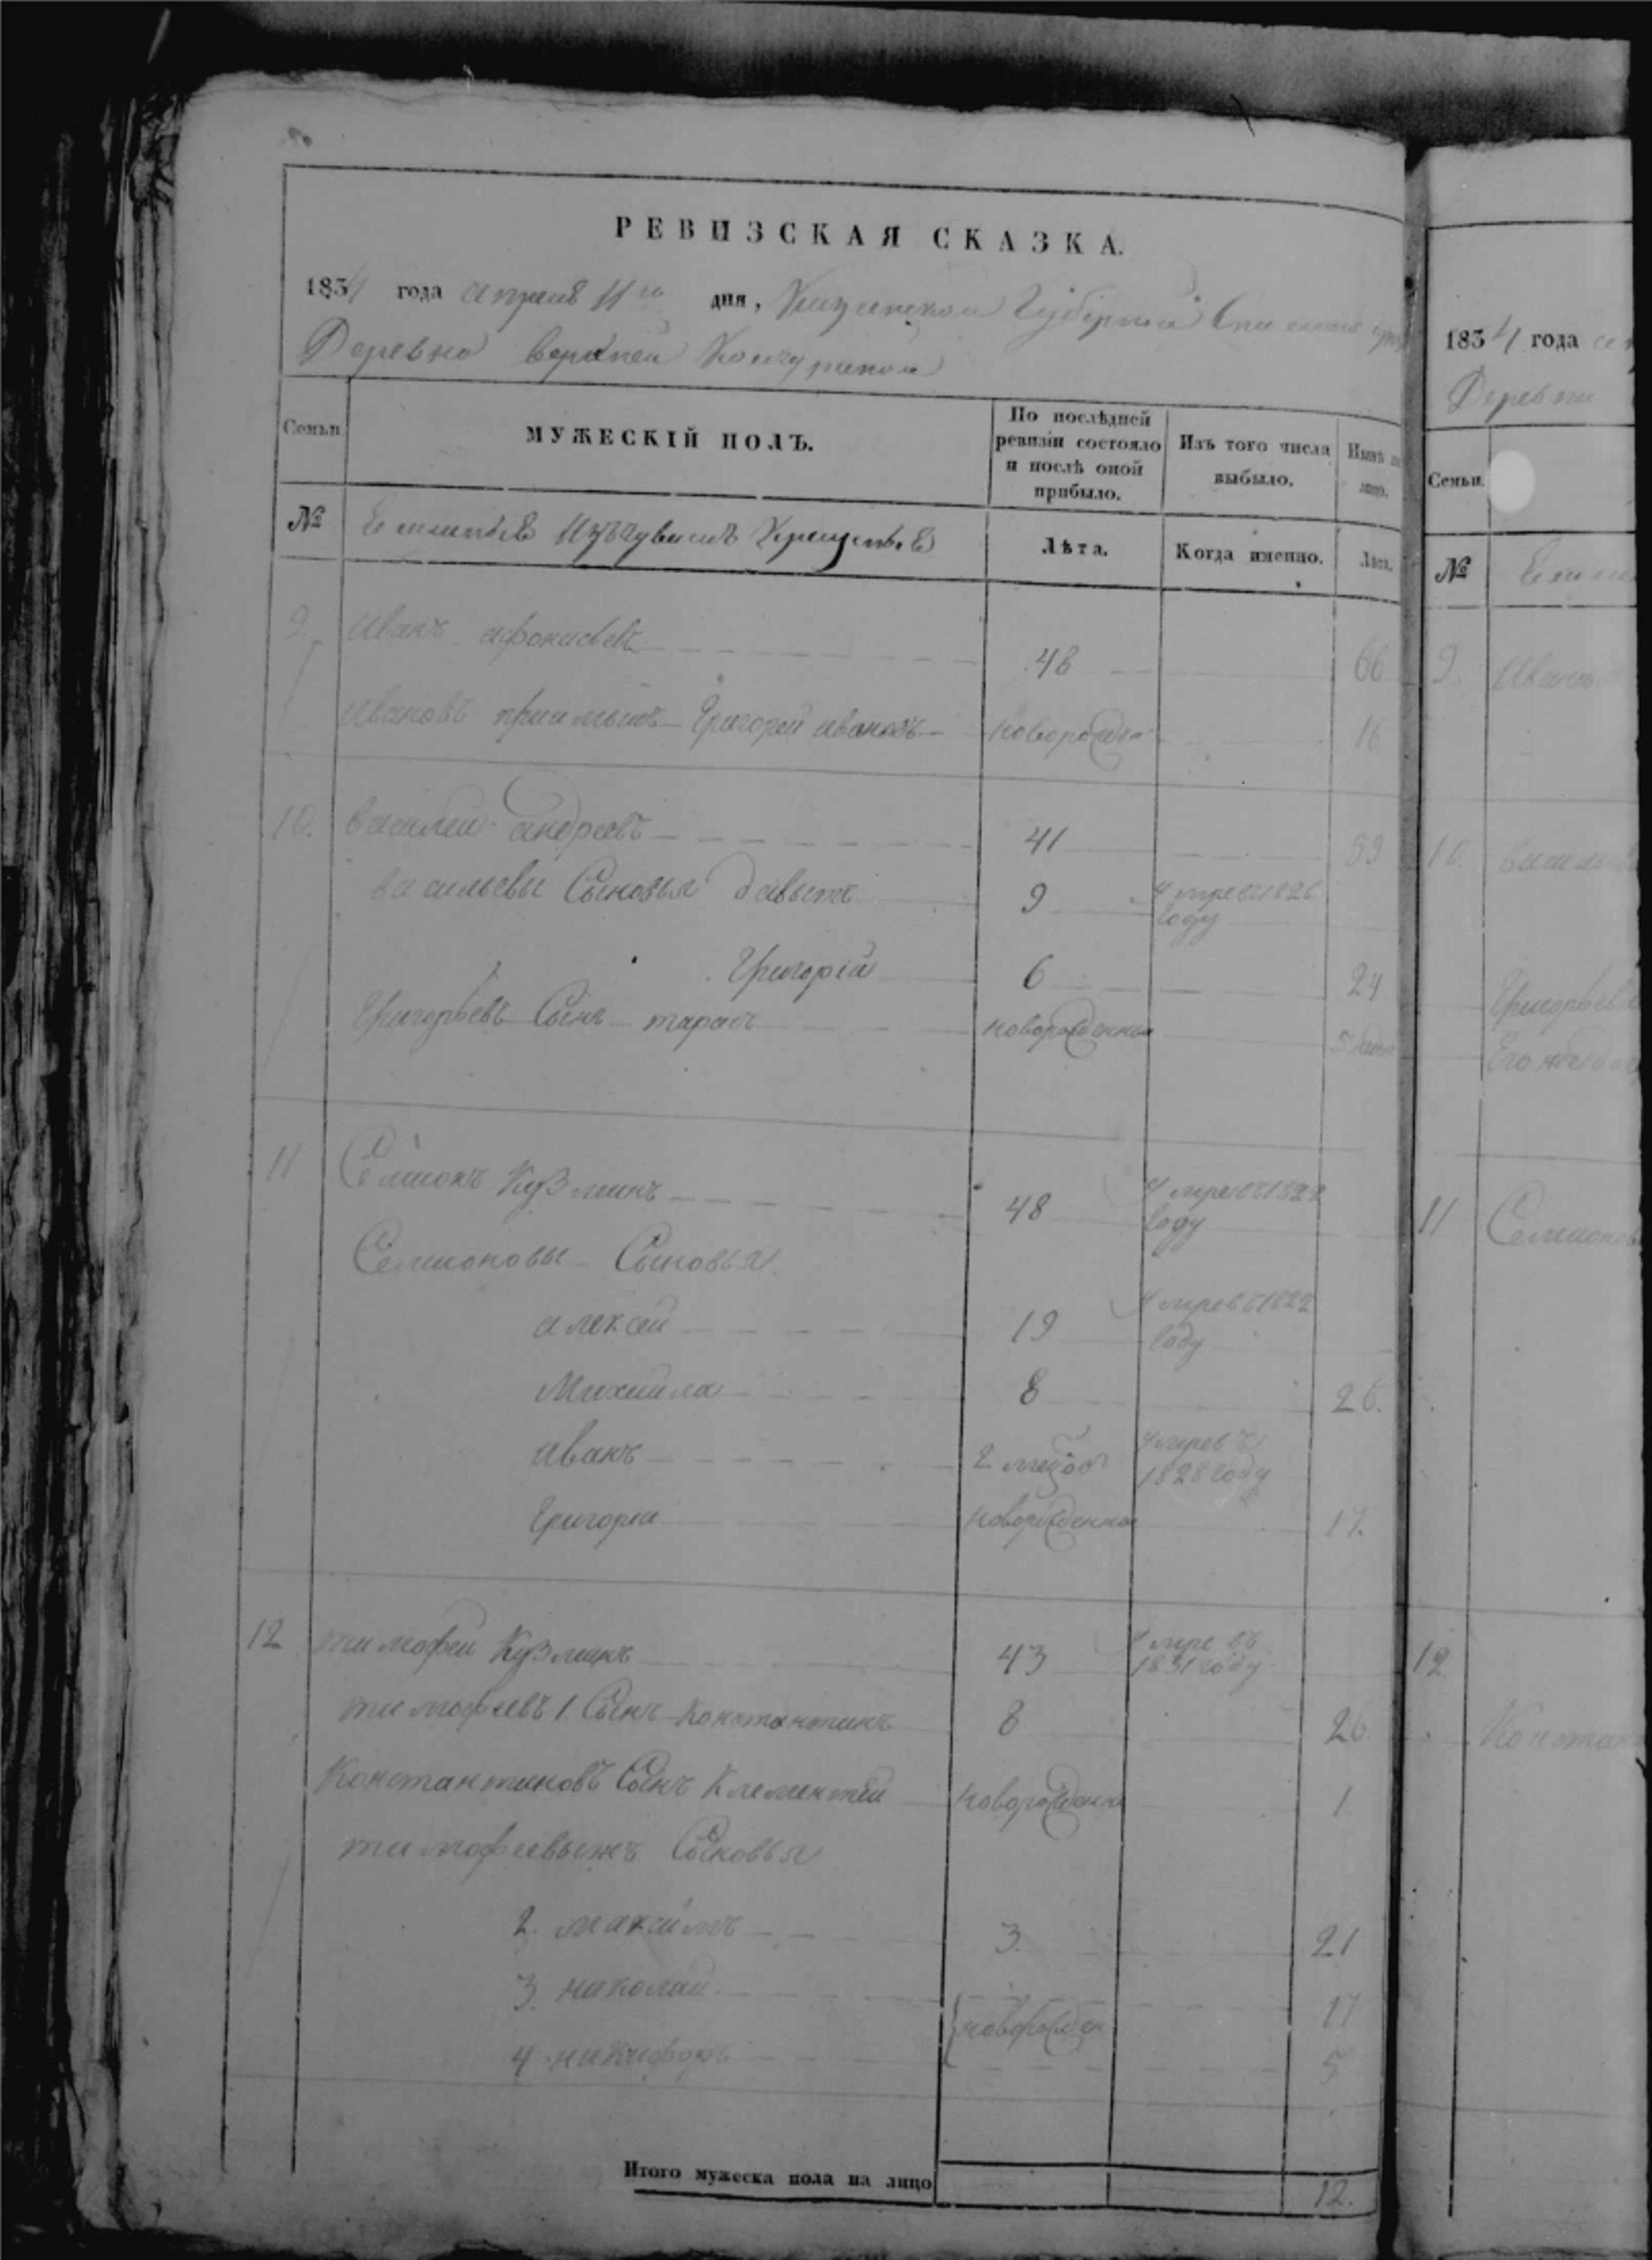 РЕВИЗСКАЯ СКАЗКА.
1834 года апреля 11го дня, Казанской Губернии
Деревни верхней
Семьи. МУЖЕСКІЙ ПОЛЪ. По послѣдней ревизіи состояло и послѣ оной прибыло. Изъ того числа выбыло. Нынѣ на лицо.
№ Изъ чувашъ Лѣта. Когда именно. Лѣта.
9. Иванъ афонасьевъ 48 66
Ивановъ приимышъ Григорей ивановъ новорожден 16
10. василей андреевъ 41 59
васильевы Сыновья давыдъ 9 умре въ 1826 году
Григорій 6 24
Григорьевъ Сынъ тарасъ новорожденны 5
11 Семионъ Кузминъ 48 умре въ 182 году
Семионовы Сыновья
алексей 19 умре въ 182 году
Михаила 8 26.
иванъ 2 умре въ 1828 году
Григореи новорожденны 17.
12 тимофеи Кузминъ 43 умре въ 1831 году
тимофеевъ 1. Сынъ Константинъ 8 26.
Константиновъ Сынъ Клементеи новорожденн 1
тимофеевыжъ Сыновья
2. максимъ 3. 21
3. николаи новорожден 17
4. никифоръ 5
Итого мужеска пола на лицо 12.
1834 года
Деревни
Семьи.
№
9. Иванов
10. василь
Григорьев
Его же
11 Семионов
12
Констан